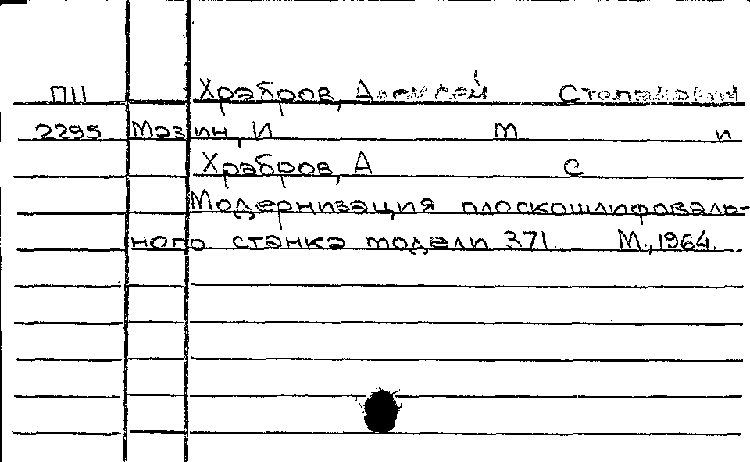 П11 Храбров, Алексей Степанович
2295 Мазин, И т п
Храбров, А с
Модернизация плоскошлифоваль-
ного станка модели 371. М., 1964.